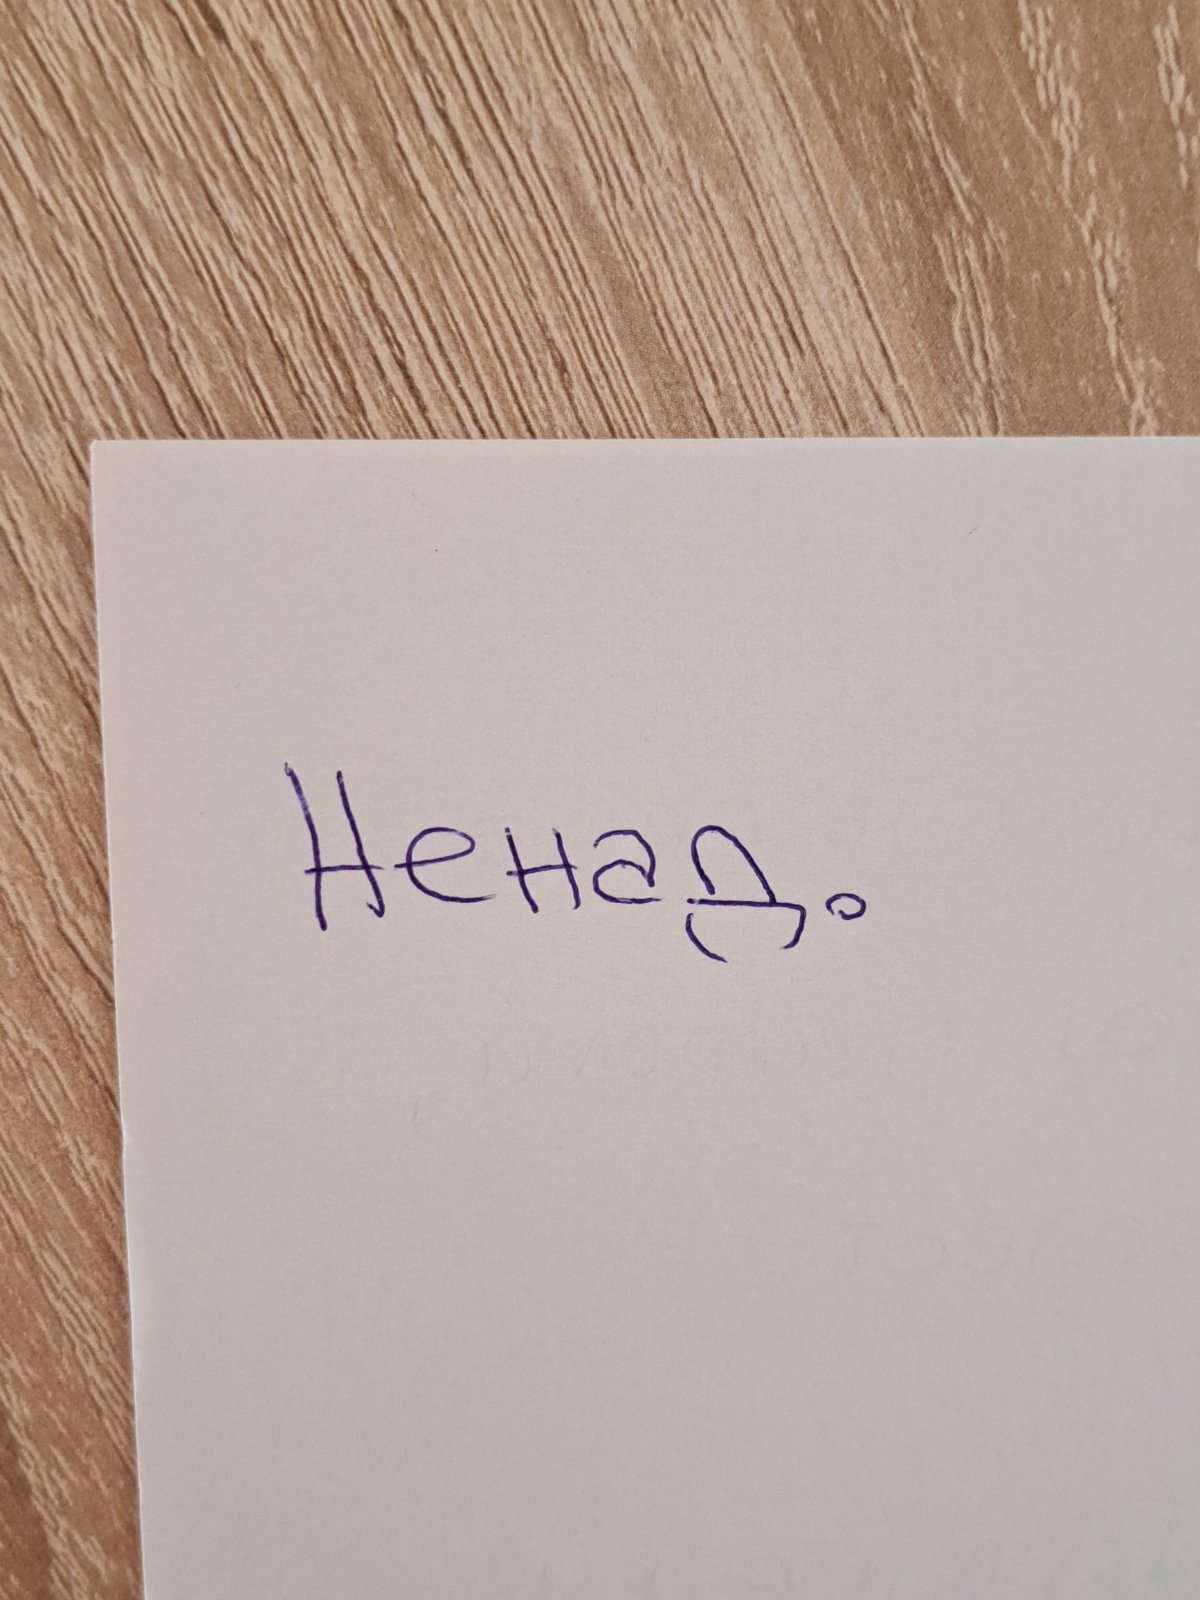 Ненад.